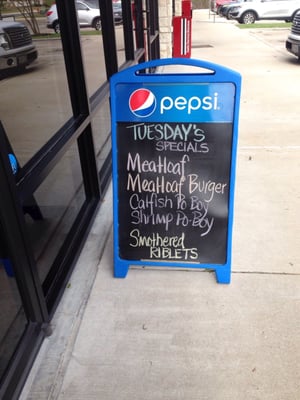 pepsi
TUESDAY'S
SPECIALS
Meatloaf
Meatloaf Burger
Catfish Po Boy
Shrimp Po-Boy
Smothered
RIBLETS